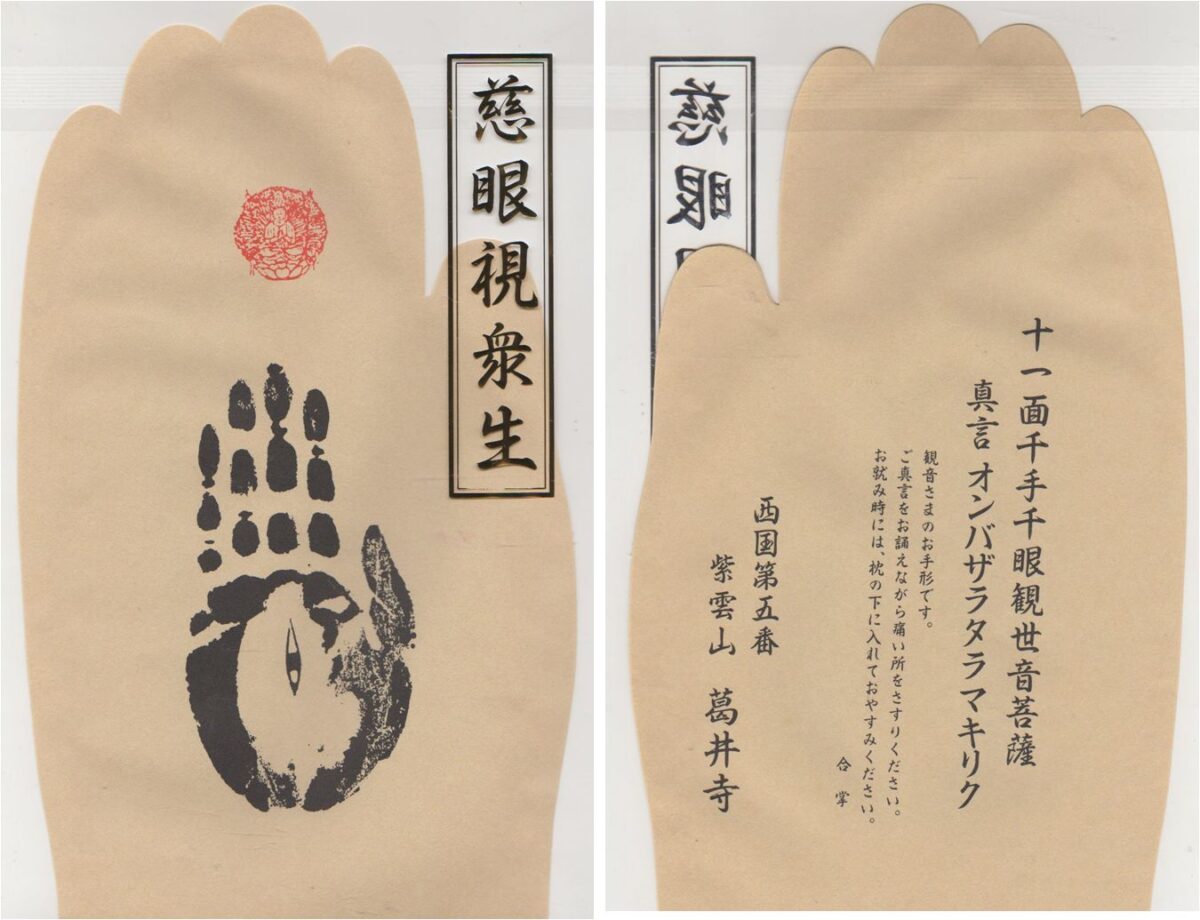 慈眼視衆生
慈眼
十一面千手千眼観世音菩薩
真言 オンバザラタラマキリク
観音さまのお手形です。
ご真言をお誦えながら痛い所をさすりください。
お就み時には、枕の下に入れておやすみください。
合掌
西国第五番
紫雲山 葛井寺